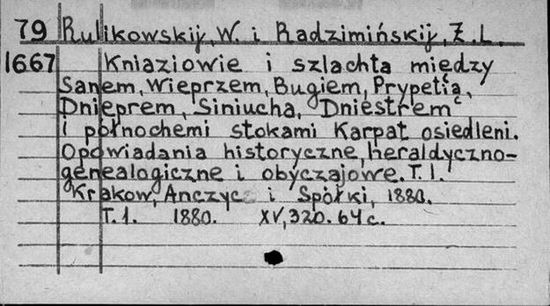 79 Rulikowskij, W. i Radzimińskij, Z. L.
1667 Kniaziowie i szlachta między
Sanem, Wieprzem, Bugiem, Prypetią,
Dnieprem, Siniucha, Dniestrem
i północhemi stokami Karpat osiedleni.
Opowiadania historyczne, heraldyczno-
genealogiczne i obyczajowe. T. 1.
Krakow, Anczyc i Spółki, 1880.
T. 1. 1880. XV, 320. 64 c.